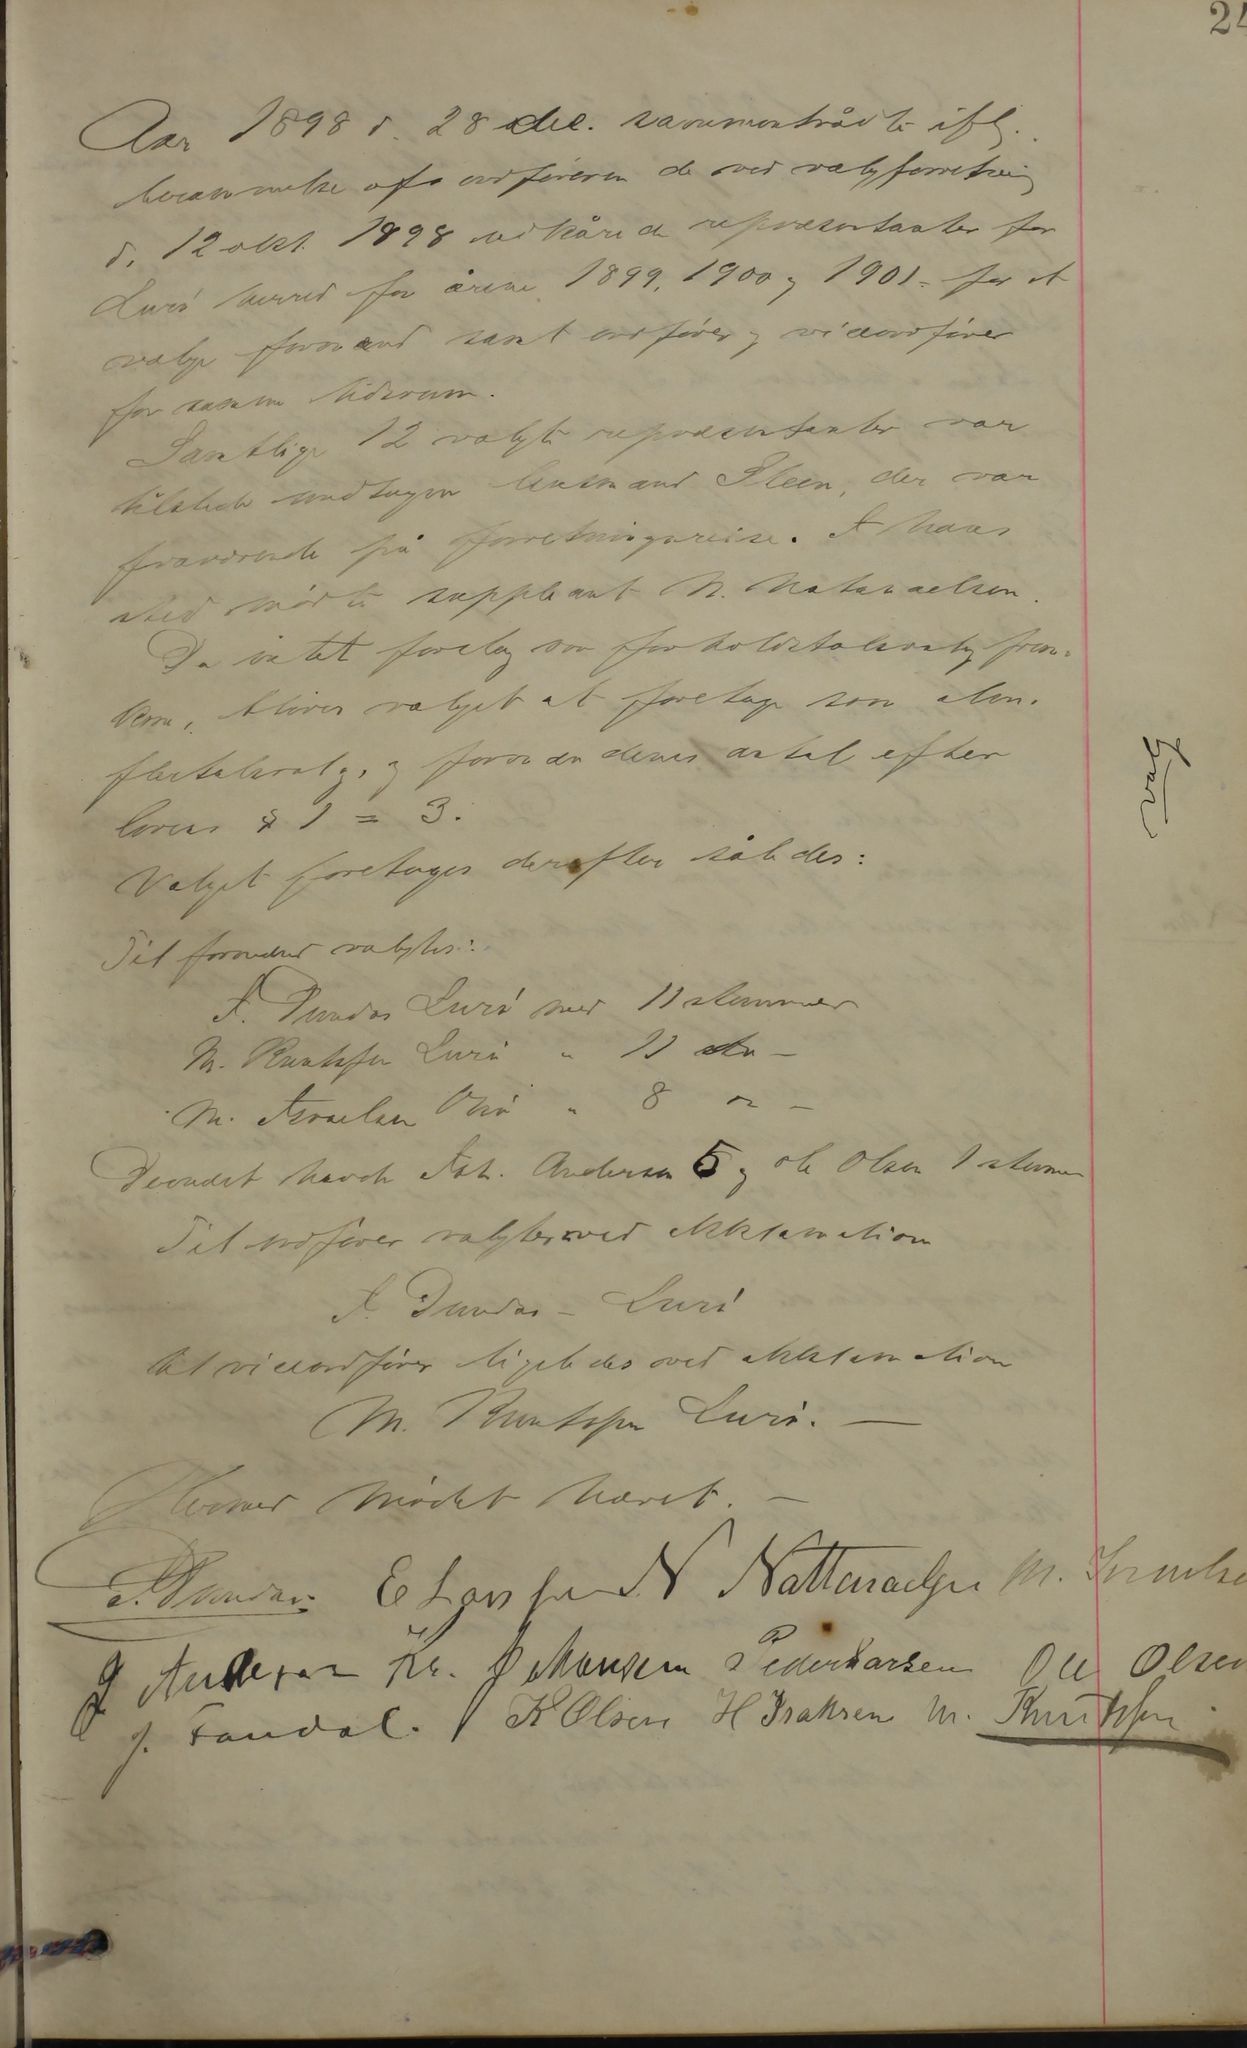 24
Aar 1898 d. 28 dec. sammentrådte ifl.
berammelse af ordføreren de ved valgforretning
d. 12 okt. 1898 udkårede repræsentanter for
Lurö herred for årene 1899, 1900 og 1901 - for at
vælge formænd samt ordfører og viceordfører
for samme tidsrum.
Samtlige 12 valgte repræsentanter var
tilstede undtagen lensmand Steen, der var
fraværende på forretningsreise. I hans
sted mødte suppleant N. Natanaelsen.
Da intet forslag om forholdstalsvalg frem-
kom, bliver valget at foretage som alm.
flertalsvalg, og formændenes antal efter
lovens § 1 = 3.
Valget foretages derefter således:
valg
Til formænd valgtes:
I. Dundas Lurö med 11 stemmer
M. Knutssen Lurö " 11 do -
M. Israelsen " 8 do -
Desuden havde Joh. Andersen 5 og Ole Olsen 1 stemme
Til ordfører valgtes ved akklamation
I. Dundas - Lurö
til viceordfører ligeledes ved akklamation
M. Knutssen Lurö. -
Hermed mødet hævet. -
I. Dundas. E Larssen N Nattanaelsen M. Israelse
J Andersen Kr. Johansen Peder Larsen Ole Olsen
J. Fandal. K Olsen H Isaksen M. Knutssen